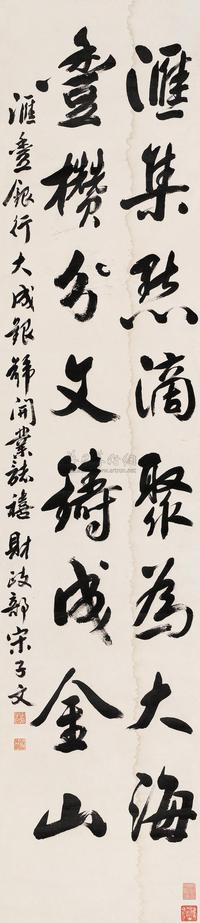 滙集點滴聚為大海
豐攢分文鑄成金山
滙豐銀行大成銀號開業誌禧財政部宋子文